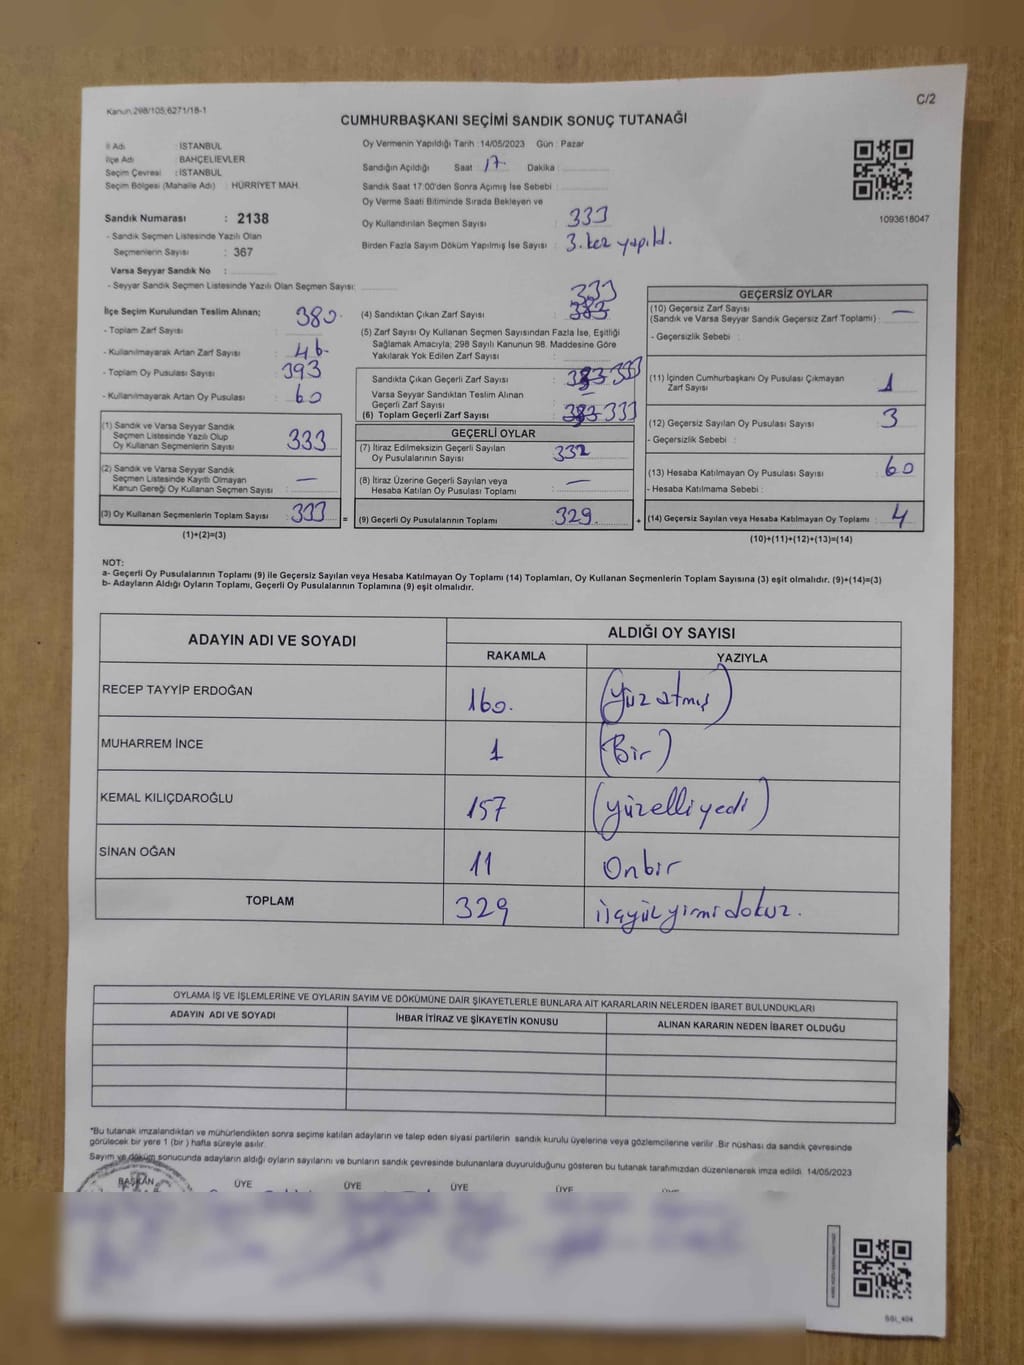 Kanun 298/105;6271/18-1
C/2
CUMHURBAŞKANI SEÇİMİ SANDIK SONUÇ TUTANAĞI
İl Adı : İSTANBUL
İlçe Adı : BAHÇELİEVLER
Seçim Çevresi : İSTANBUL
Seçim Bölgesi (Mahalle Adı) : HÜRRİYET MAH.
Sandık Numarası : 2138
- Sandık Seçmen Listesinde Yazılı Olan
Seçmenlerin Sayısı : 367
Varsa Seyyar Sandık No :
- Seyyar Sandık Seçmen Listesinde Yazılı Olan Seçmen Sayısı:
Oy Vermenin Yapıldığı Tarih :14/05/2023 Gün : Pazar
Sandığın Açıldığı Saat : 17 Dakika :
Sandık Saat 17:00'den Sonra Açımış İse Sebebi :
Oy Verme Saati Bitiminde Sırada Bekleyen ve
Oy Kullandırılan Seçmen Sayısı : 333
Birden Fazla Sayım Döküm Yapılmış İse Sayısı : 3. kez yapıld.
1093618047
İlçe Seçim Kurulundan Teslim Alınan; 380
- Toplam Zarf Sayısı :
- Kullanılmayarak Artan Zarf Sayısı : 46
- Toplam Oy Pusulası Sayısı : 393
- Kullanılmayarak Artan Oy Pusulası : 60
(1) Sandık ve Varsa Seyyar Sandık
Seçmen Listesinde Yazılı Olup
Oy Kullanan Seçmenlerin Sayısı : 333
(2) Sandık ve Varsa Seyyar Sandık
Seçmen Listesinde Kayıtlı Olmayan
Kanun Gereği Oy Kullanan Seçmen Sayısı : —
(3) Oy Kullanan Seçmenlerin Toplam Sayısı : 333 =
(1)+(2)=(3)
333
(4) Sandıktan Çıkan Zarf Sayısı : 383
(5) Zarf Sayısı Oy Kullanan Seçmen Sayısından Fazla İse, Eşitliği
Sağlamak Amacıyla; 298 Sayılı Kanunun 98. Maddesine Göre
Yakılarak Yok Edilen Zarf Sayısı :
Sandıkta Çıkan Geçerli Zarf Sayısı : 383 333
Varsa Seyyar Sandıktan Teslim Alınan
Geçerli Zarf Sayısı :
(6) Toplam Geçerli Zarf Sayısı : 383 333
GEÇERLİ OYLAR
(7) İtiraz Edilmeksizin Geçerli Sayılan
Oy Pusulalarının Sayısı : 332
(8) İtiraz Üzerine Geçerli Sayılan veya
Hesaba Katılan Oy Pusulası Toplamı : —
(9) Geçerli Oy Pusulalarının Toplamı : 329. +
GEÇERSİZ OYLAR
(10) Geçersiz Zarf Sayısı
(Sandık ve Varsa Seyyar Sandık Geçersiz Zarf Toplamı) : —
- Geçersizlik Sebebi :
(11) İçinden Cumhurbaşkanı Oy Pusulası Çıkmayan
Zarf Sayısı : 1
(12) Geçersiz Sayılan Oy Pusulası Sayısı : 3
- Geçersizlik Sebebi :
(13) Hesaba Katılmayan Oy Pusulası Sayısı : 60
- Hesaba Katılmama Sebebi :
(14) Geçersiz Sayılan veya Hesaba Katılmayan Oy Toplamı : 4
(10)+(11)+(12)+(13)=(14)
NOT:
a- Geçerli Oy Pusulalarının Toplamı (9) ile Geçersiz Sayılan veya Hesaba Katılmayan Oy Toplamı (14) Toplamları, Oy Kullanan Seçmenlerin Toplam Sayısına (3) eşit olmalıdır. (9)+(14)=(3)
b- Adayların Aldığı Oyların Toplamı, Geçerli Oy Pusulalarının Toplamına (9) eşit olmalıdır.
ADAYIN ADI VE SOYADI
ALDIĞI OY SAYISI
RAKAMLA YAZIYLA
RECEP TAYYİP ERDOĞAN 160. (Yüz atmış)
MUHARREM İNCE 1 (Bir)
KEMAL KILIÇDAROĞLU 157 (yüzelli yedi)
SİNAN OĞAN 11 Onbir
TOPLAM 329 üçyüz yirmi dokuz.
OYLAMA İŞ VE İŞLEMLERİNE VE OYLARIN SAYIM VE DÖKÜMÜNE DAİR ŞİKAYETLERLE BUNLARA AİT KARARLARIN NELERDEN İBARET BULUNDUKLARI
ADAYIN ADI VE SOYADI İHBAR İTİRAZ VE ŞİKAYETİN KONUSU ALINAN KARARIN NEDEN İBARET OLDUĞU
*Bu tutanak imzalandıktan ve mühürlendikten sonra seçime katılan adayların ve talep eden siyasi partilerin sandık kurulu üyelerine veya gözlemcilerine verilir .Bir nüshası da sandık çevresinde
görülecek bir yere 1 (bir ) hafta süreyle asılır.
Sayım ve döküm sonucunda adayların aldığı oyların sayılarını ve bunların sandık çevresinde bulunanlara duyurulduğunu gösteren bu tutanak tarafımızdan düzenlenerek imza edildi. 14/05/2023
BAŞKAN ÜYE ÜYE ÜYE ÜYE ÜYE